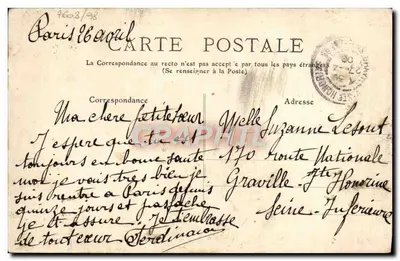 7603/98
Paris 26 avril
CARTE POSTALE
La Correspondance au recto n'est pas acceptée par tous les pays étrangers
(Se renseigner à la Poste)
Correspondance
Adresse
Ma chere petite sœur
J'espere que tu est
toujours en bonne santé
moi je vais tres bien je
suis rentre a Paris depuis
quinze jours et pas fache
je t'assure. Je t'embrasse
de tout cœur Ferdinand
Melle Suzanne Lesout
170 route Nationale
Graville - Ste Honorine
Seine - Inferieure